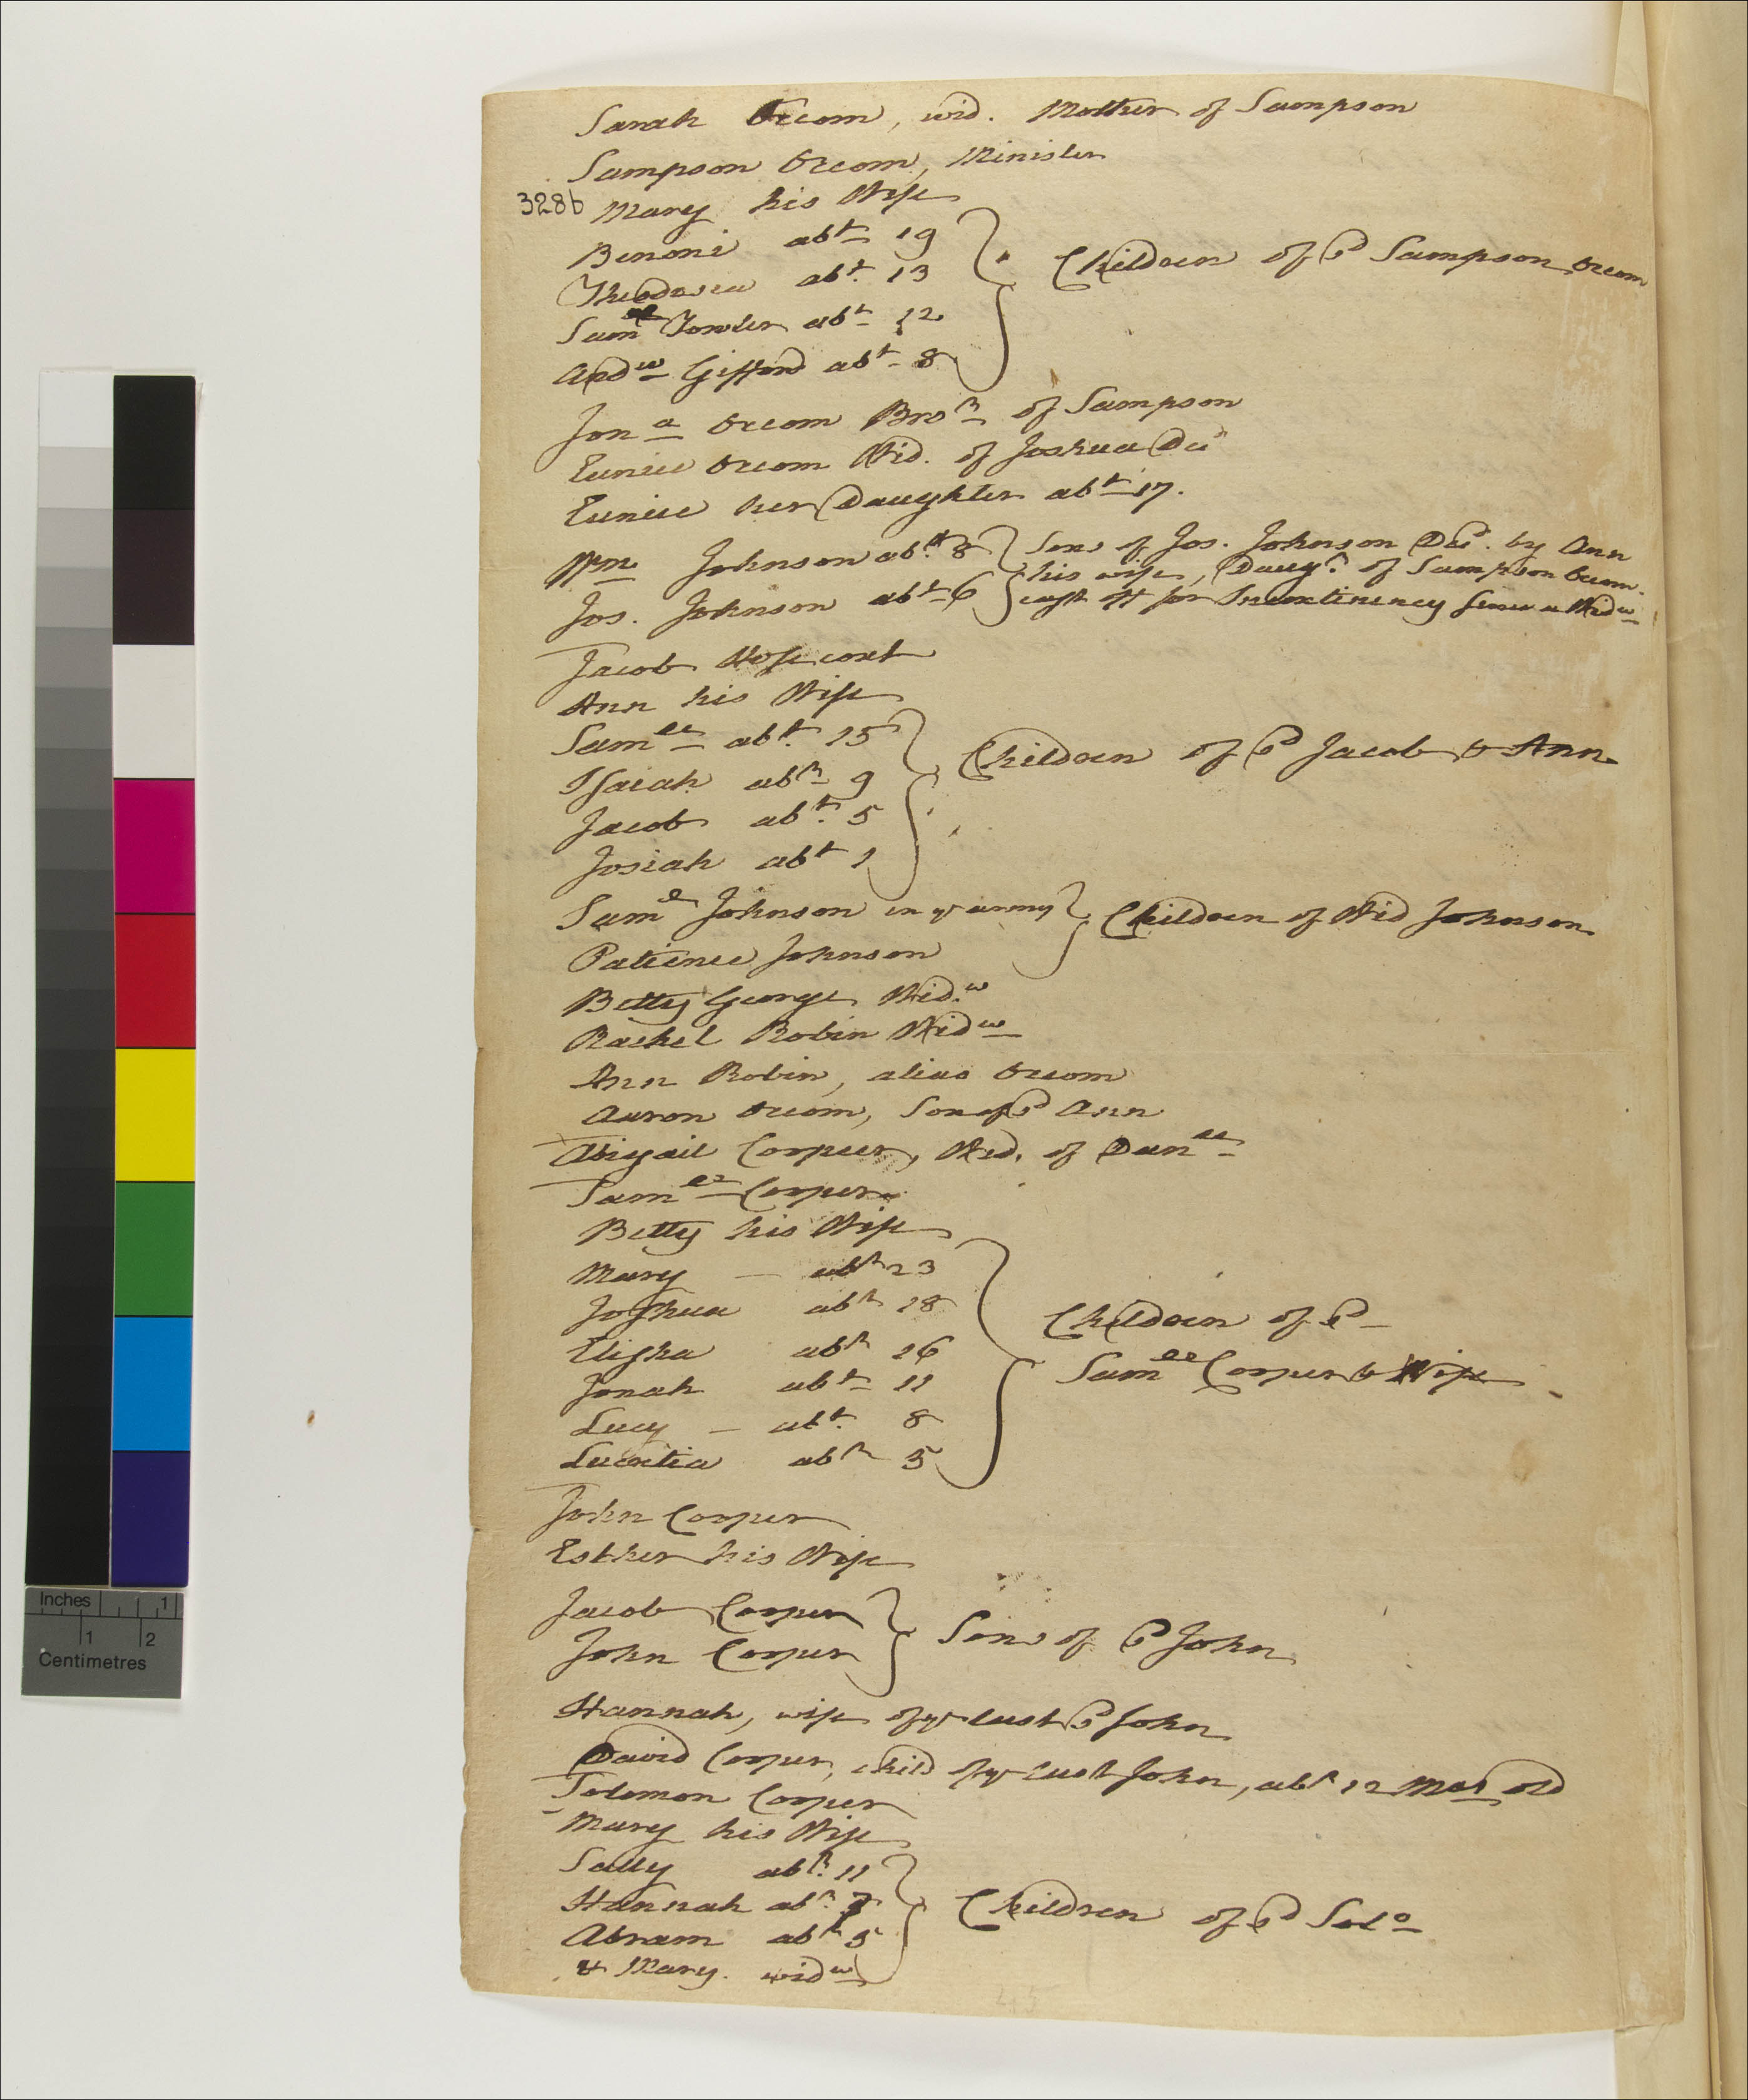 Sarah Occom, wid. Mother of Sampson
Sampson Occom, Minister
328b
Mary his Wife
Benoni abt 19
Theodosia abt. 13
Saml Fowler abt 12
Andw Gifford abt 8
Children of sd Sampson Occom
Jona Occom Bror of Sampson
Eunice Occom Wid. of Joshua Decd
Eunice her Daughter abt 17.
Wm Johnson abt 8
Jos. Johnson abt 6
Sons of Jos. Johnson Decd. by Ann
his wife, Daugr. of Sampson Occom.
cast off for Incontinency since a Widw
Jacob Hoscoat
Ann his Wife
Samll abt. 15
Isaiah abt 9
Jacob abt. 5
Josiah abt 1
Children of sd Jacob & Ann
Saml Johnson in ye army
Patience Johnson
Children of Wid Johnson
Betty George Wid.w
Rachel Robin Widw
Ann Robin, alias Occom
Aaron Occom, Son of sd Ann
Abigail Cooper, Wid. of Danll
Samll Cooper
Betty his Wife
Mary — abt 23
Joshua abt 18
Elisha abt 16
Jonah abt 11
Lucy — abt. 8
Lucretia abt 5
Children of sd
Samll Cooper & Wife
John Cooper
Esther his Wife
Jacob Cooper
John Cooper
Sons of sd John
Hannah, wife of ye last sd John
David Cooper, child of ye last John, abt 12 Mos old
Solomon Cooper
Mary his Wife
Sally abt. 11
Hannah abt. 7
Abram abt 5
& Mary. widw
Children of sd Solo
Inches 1
1 2
Centimetres